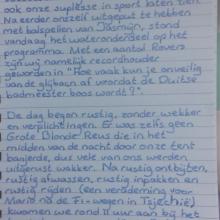 ook onze suplesse in sport laten zien.
Na eerder onszelf uitgeput te hebben
met balspelen van Dasmijn, stond
vandaag het wateronderdeel op het
programma. Met een aantal Rovers
zijn wij namelijk recordhouder
geworden in "Hoe vaak kun je onveilig
van de glijbaan af voordat de Duitse
badmeester boos wordt?".
De dag begon rustig, zonder wekker
en verplichtingen. Er was zelfs geen
Grote Blonde Reus die in het
midden van de nacht door onze tent
banjerde, dus vele van ons werden
uitgerust wakker. Na rustig ontbijten,
rustig afwassen, rustig inpakken en
rustig rijden (een verademing voor
Mario na de F1-wegen in Tsjechië)
kwamen we rond 11 uur aan bij het